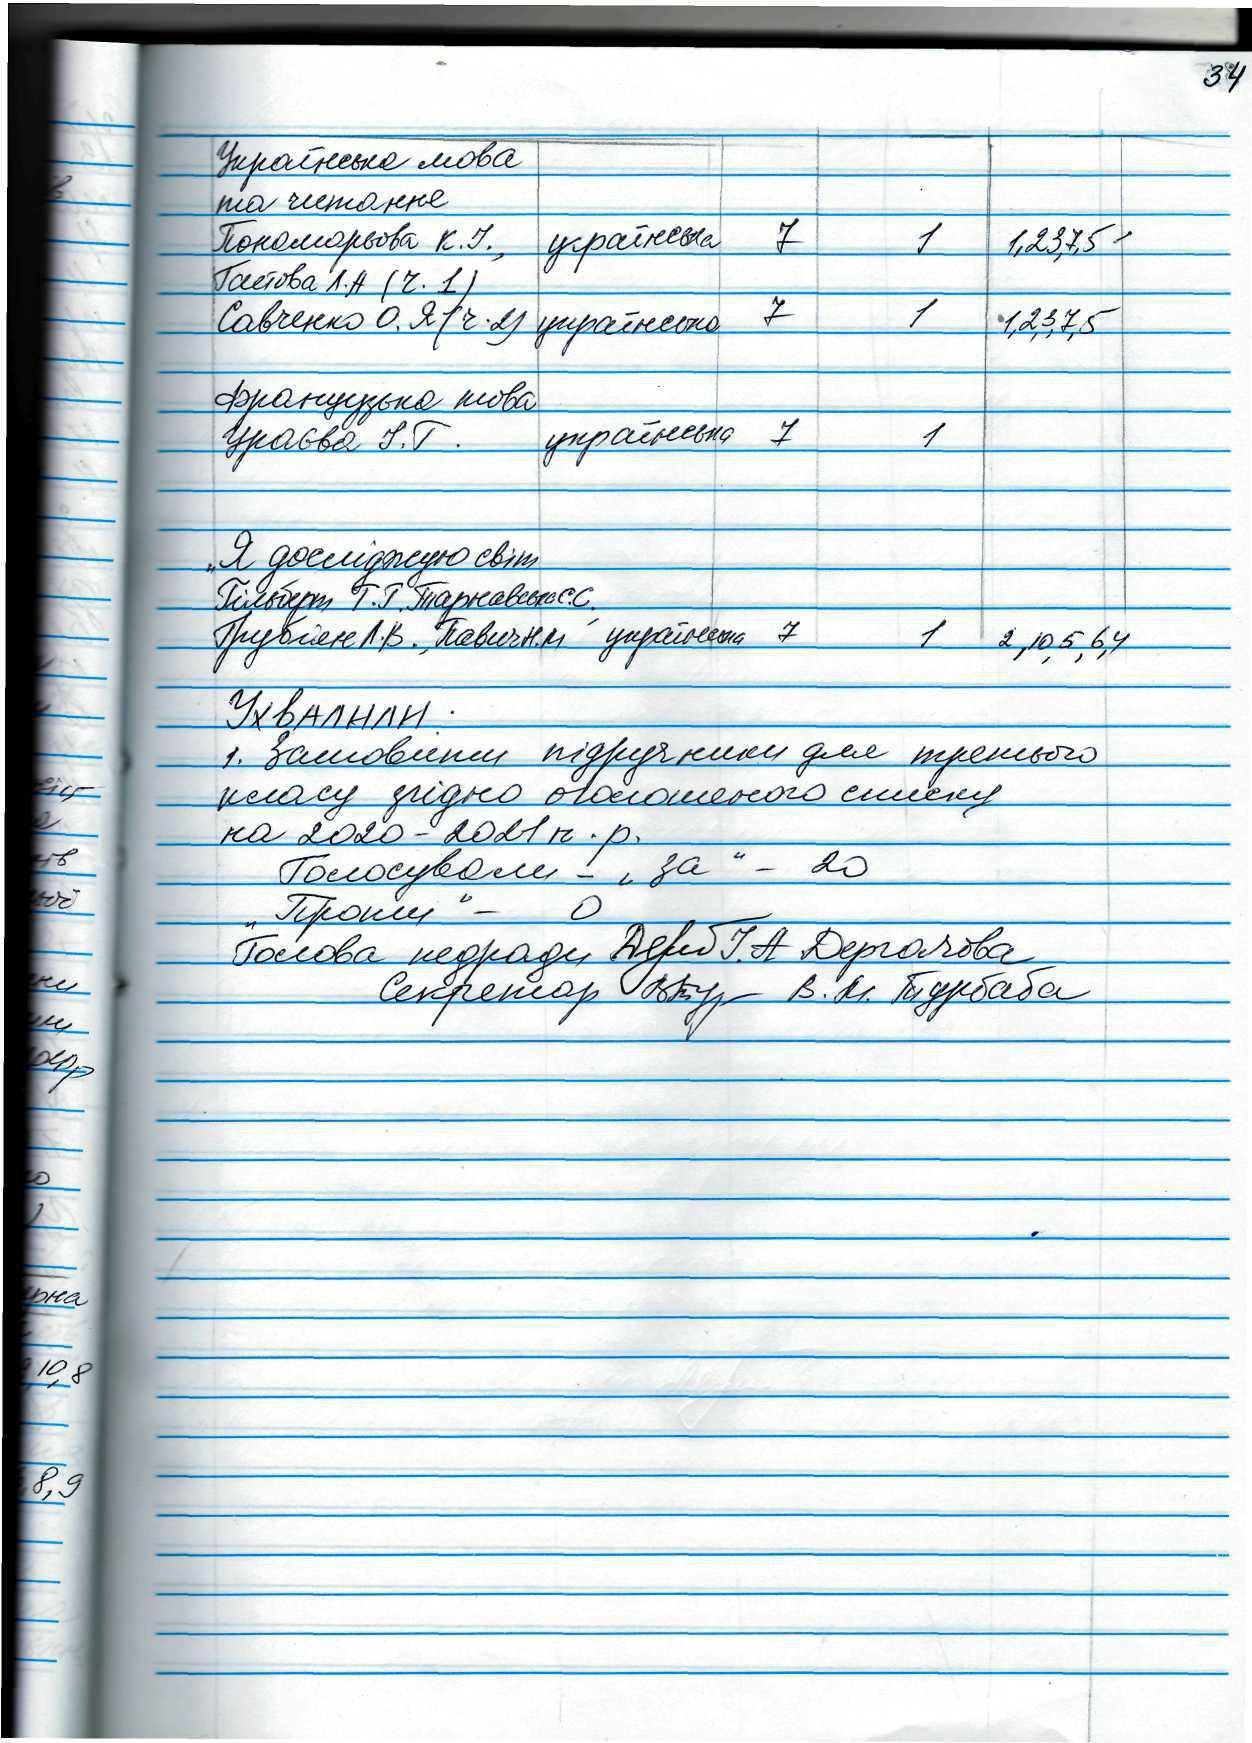 34
Українська мова
та читання
Пономарьова К.І., українська 7 1 1,2,3,7,5
Гайова Л.А (ч. 1)
Савченко О.Я (ч.2) українська 7 1 1,2,3,7,5
Французька мова
Ураєва І.Г. українська 7 1
„Я досліджую світ
Гільберг Т.Г. Тарнавська С.С.,
Грубіян Л.В., Павич Н.М українська 7 1 2,10,5,6,4
УХВАЛИЛИ.
1. Замовити підручники для третього
класу згідно оголошеного списку
на 2020-2021 н.р.
Голосували - „за" - 20
„Проти" - 0
Голова педради І.А Дергачова
Секретар В.М. Турбаба
10,8
8,9